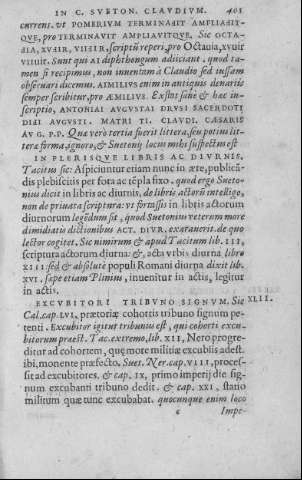 IN C. SVETON. CLAVDIVM. 401
currens. vt POMERIVM TERMINASIT AMPLIASIT-
QVE, pro TERMINAVIT AMPLIAVITQVE. Sic OCTA-
DIA, XVIIR, VIIIIR, scriptũ reperi, pro Octauia, xvuir
viiuit. Sunt qui AI diphthongum adiiciant. quod ta-
men si recipimus, non inuentam à Claudio sed iussam
obseruari dicemus. AIMILIVS enim in antiquis denariis
semper scribitur, pro AEMILIVS. Exstat sanè & hæc in-
scriptio, ANTONIAI AVGVSTAI DRVSI SACERDOTI
DIEI AVGVSTI. MATRI TI. CLAVDI. CAESARIS
AVG. P.P. Qua verò tertia fuerit littera, seu potius lit-
tera forma, ignoro, & Suetonij locus mihi suspectus est
IN PLERISQVE LIBRIS AC DIVRNIS.
Tacitus sic: Aspiciuntur etiam nunc in ære, publicã-
dis plebiscitis per fora ac tẽpla fixo. quod ergo Sueto-
nius dicit in libris ac diurnis, de libris actorũ intelligo,
non de priuata scriptura: vt fortassis in libris actorum
diurnorum legẽdum sit, quod Suetonius veterum more
dimidiatis dictionibus ACT. DIVR. exarauerit. de quo
lector cogitet. Sic nimirum & apud Tacitum lib. III,
scriptura actorum diurna: &, acta vrbis diurna libro
XIII sed & absolutè populi Romani diurna dixit lib.
XVI. sæpe etiam Plinius, inuenitur in actis, legitur
in actis.
EXCVBITORI TRIBVNO SIGNVM. Sic XLII.
Cal. cap. LVI, prætoriæ cohortis tribuno signum pe-
tenti. Excubitor igitur tribunus est, qui cohorti excu-
bitorum præest. Tac. extremo, lib. XII, Nero progre-
ditur ad cohortem, quæ more militiæ excubiis adest.
ibi, monente præfecto. Suet. Ner. cap. VIII, proces-
sit ad excubitores. & cap. IX, primo imperij die sig-
num excubanti tribuno dedit. & cap. XXI, statio
militum quæ tunc excubabat. quocunque enim loco
c Impe-